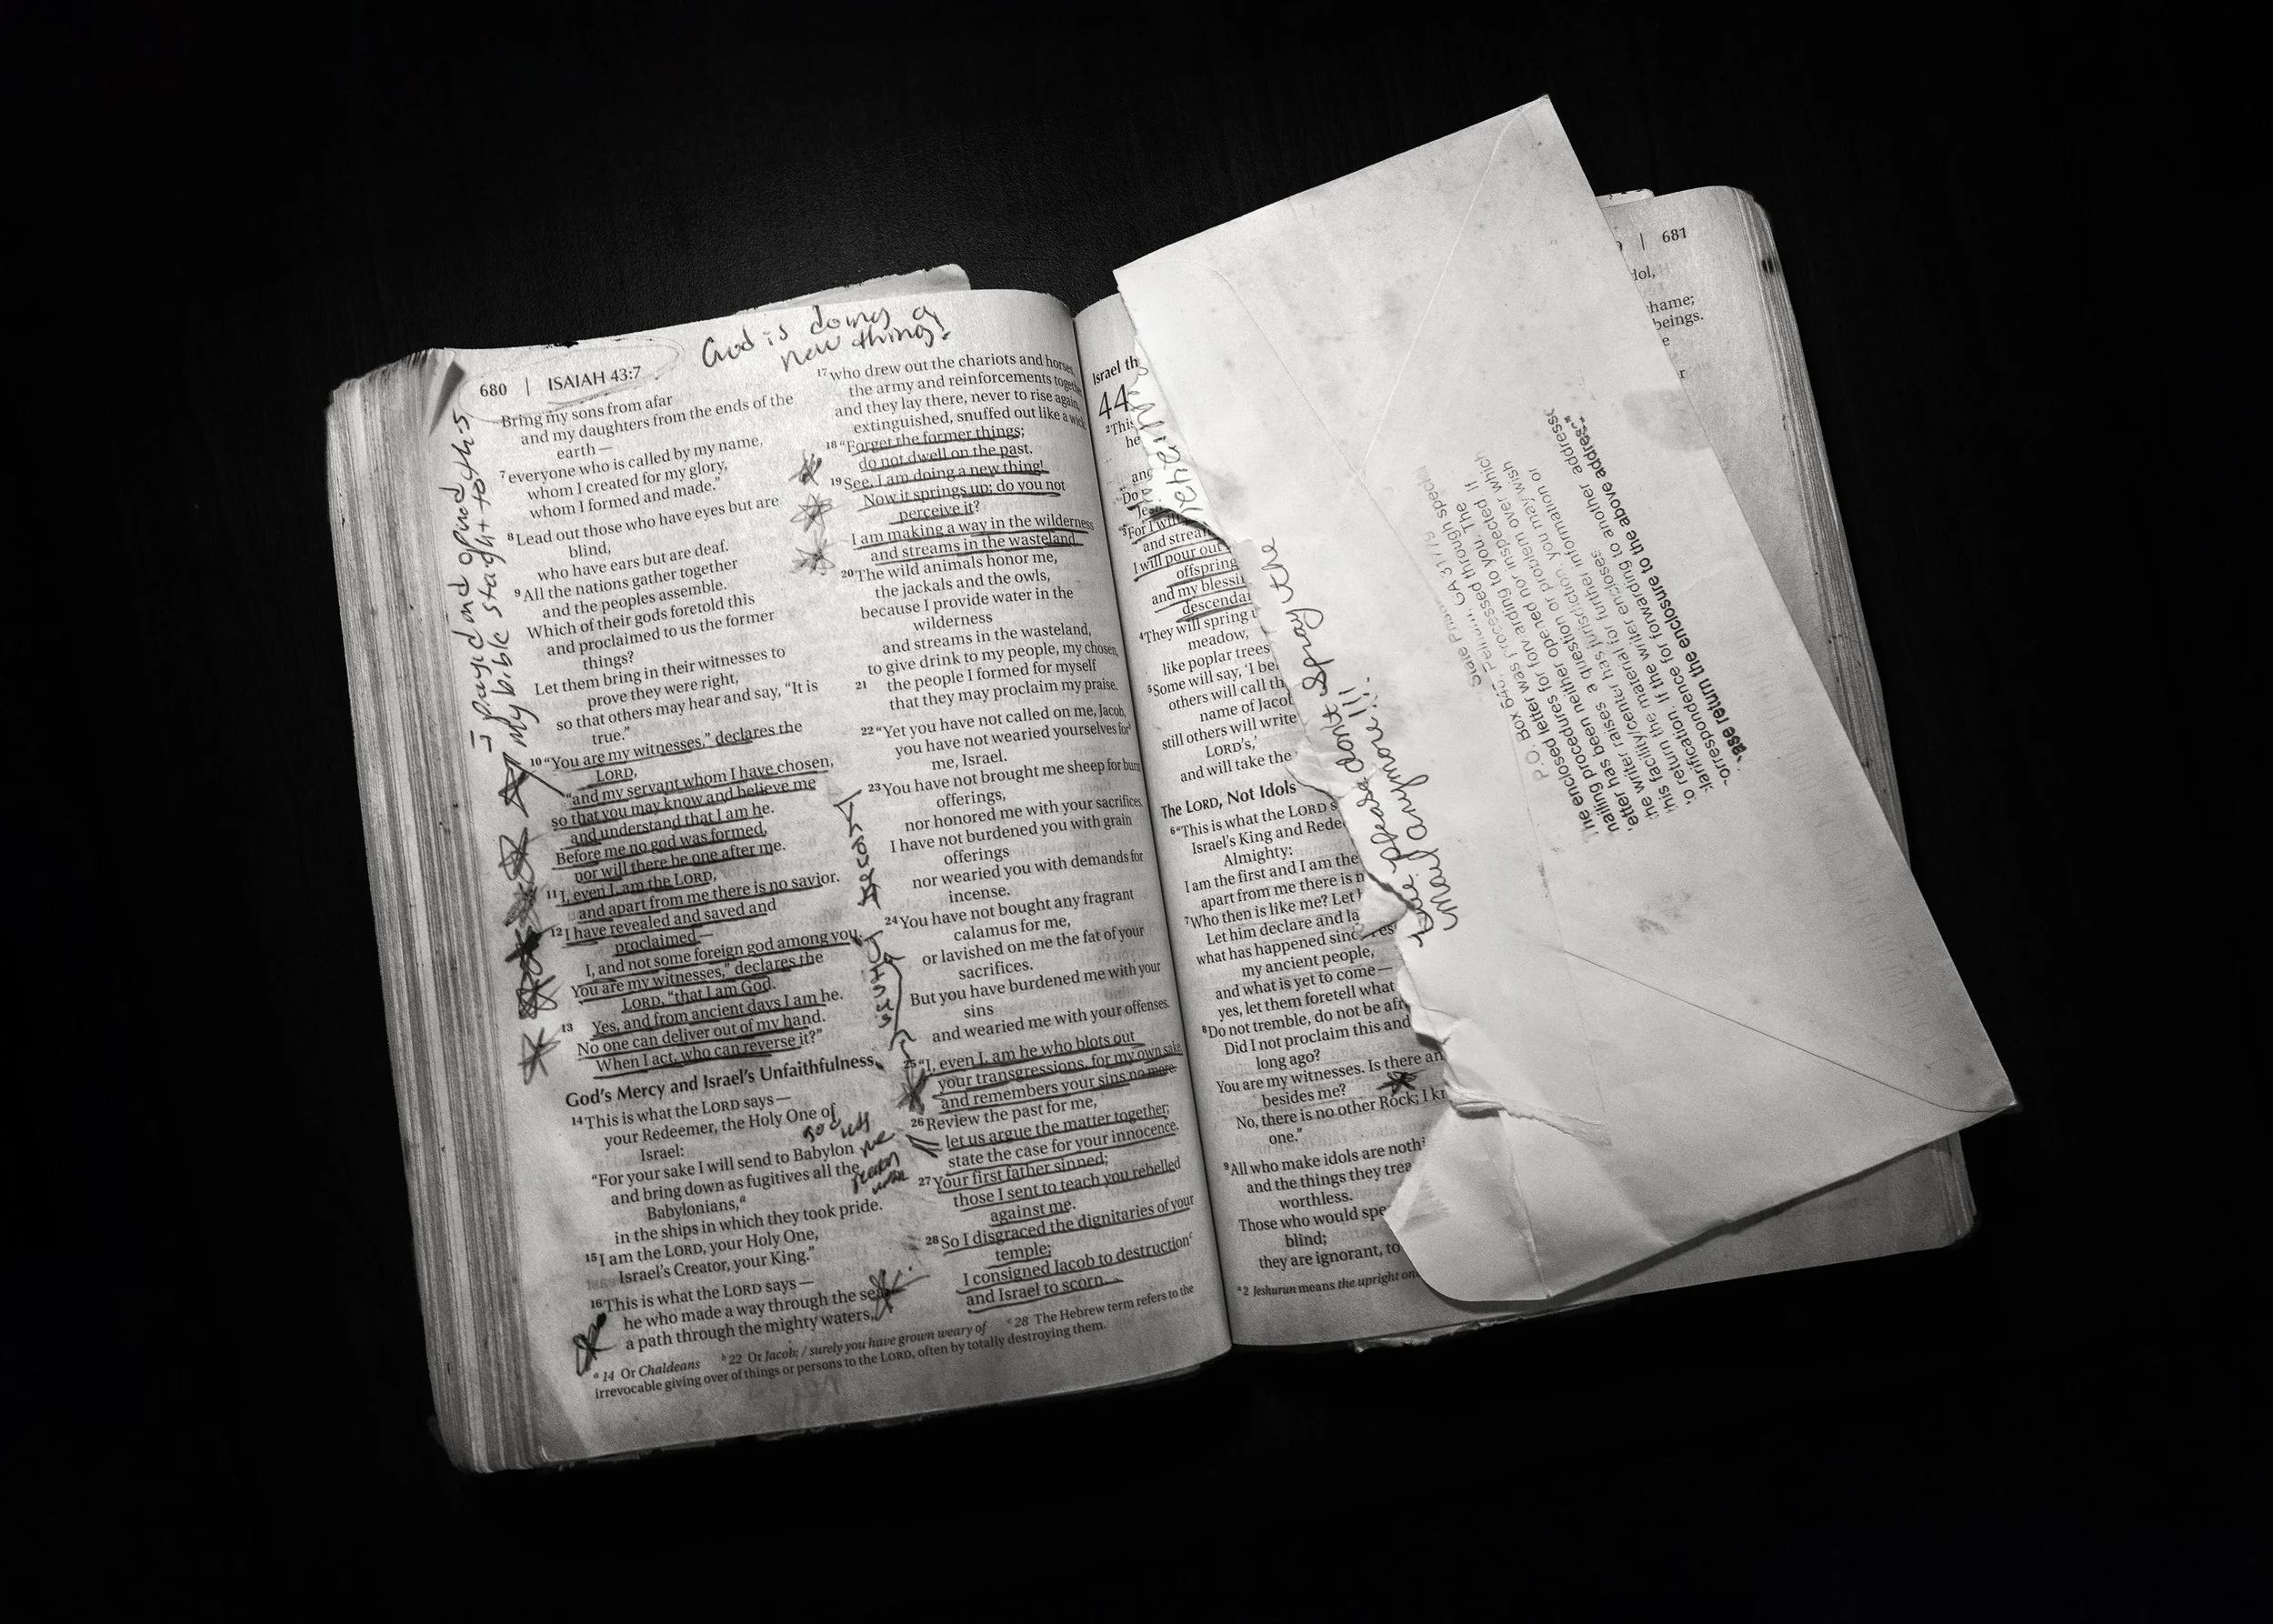 God is doing a
new thing!
680 | ISAIAH 43:7
Bring my sons from afar
and my daughters from the ends of the
earth—
7 everyone who is called by my name,
whom I created for my glory,
whom I formed and made.”
8 Lead out those who have eyes but are
blind,
who have ears but are deaf.
9 All the nations gather together
and the peoples assemble.
Which of their gods foretold this
and proclaimed to us the former
things?
Let them bring in their witnesses to
prove they were right,
so that others may hear and say, “It is
true.”
10 “You are my witnesses,” declares the
LORD,
“and my servant whom I have chosen,
so that you may know and believe me
and understand that I am he.
Before me no god was formed,
nor will there be one after me.
11 I, even I, am the LORD,
and apart from me there is no savior.
12 I have revealed and saved and
proclaimed—
I, and not some foreign god among you.
You are my witnesses,” declares the
LORD, “that I am God.
13 Yes, and from ancient days I am he.
No one can deliver out of my hand.
When I act, who can reverse it?”
God’s Mercy and Israel’s Unfaithfulness
14 This is what the LORD says—
your Redeemer, the Holy One of
Israel:
“For your sake I will send to Babylon
and bring down as fugitives all the
Babylonians,a
in the ships in which they took pride.
15 I am the LORD, your Holy One,
Israel’s Creator, your King.”
16 This is what the LORD says—
he who made a way through the sea,
a path through the mighty waters,
I payed and opind
my bible staght to this
god
me
17 who drew out the chariots and horses,
the army and reinforcements together,
and they lay there, never to rise again,
extinguished, snuffed out like a wick:
18 “Forget the former things;
do not dwell on the past.
19 See, I am doing a new thing!
Now it springs up; do you not
perceive it?
I am making a way in the wilderness
and streams in the wasteland.
20 The wild animals honor me,
the jackals and the owls,
because I provide water in the
wilderness
and streams in the wasteland,
to give drink to my people, my chosen,
21 the people I formed for myself
that they may proclaim my praise.
22 “Yet you have not called on me, Jacob,
you have not wearied yourselves forb
me, Israel.
23 You have not brought me sheep for burnt
offerings,
nor honored me with your sacrifices.
I have not burdened you with grain
offerings
nor wearied you with demands for
incense.
24 You have not bought any fragrant
calamus for me,
or lavished on me the fat of your
sacrifices.
But you have burdened me with your
sins
and wearied me with your offenses.
25 “I, even I, am he who blots out
your transgressions, for my own sake,
and remembers your sins no more.
26 Review the past for me,
let us argue the matter together;
state the case for your innocence.
27 Your first father sinned;
those I sent to teach you rebelled
against me.
28 So I disgraced the dignitaries of your
temple;
I consigned Jacob to destructionc
and Israel to scorn.
a 14 Or Chaldeans b 22 Or Jacob; / surely you have grown weary of c 28 The Hebrew term refers to the
irrevocable giving over of things or persons to the LORD, often by totally destroying them.
| 681
Israel th
44
2 This
he
Do
3 For I will
and strea
I will pour out
offspring
and my blessi
descenda
4 They will spring
meadow,
like poplar trees
5 Some will say, ‘I be
others will call th
name of Jacob
still others will write
LORD’s,’
and will take the
The LORD, Not Idols
6 “This is what the LORD s
Israel’s King and Rede
Almighty:
I am the first and I am the
apart from me there is n
7 Who then is like me? Let
Let him declare and la
what has happened sinc
my ancient people,
and what is yet to come—
yes, let them foretell what
8 Do not tremble, do not be afr
Did I not proclaim this and
long ago?
You are my witnesses. Is there an
besides me?
No, there is no other Rock; I kn
one.”
9 All who make idols are noth
and the things they trea
worthless.
Those who would spe
blind;
they are ignorant, to
a 2 Jeshurun means the upright one
dol,
hame;
beings.
please don't spray the
mail anymore!!!
P.O. Box 
GA 31779
he enclosed letter was processed through special
nailing procedures for forwarding to you. The
etter has been neither opened nor inspected. If
the writer raises a question or problem over which
this facility/center has jurisdiction, you may wish
o return the material for further information or
larification. If the writer encloses
orrespondence for forwarding to another addressee
ase return the enclosure to the above address."